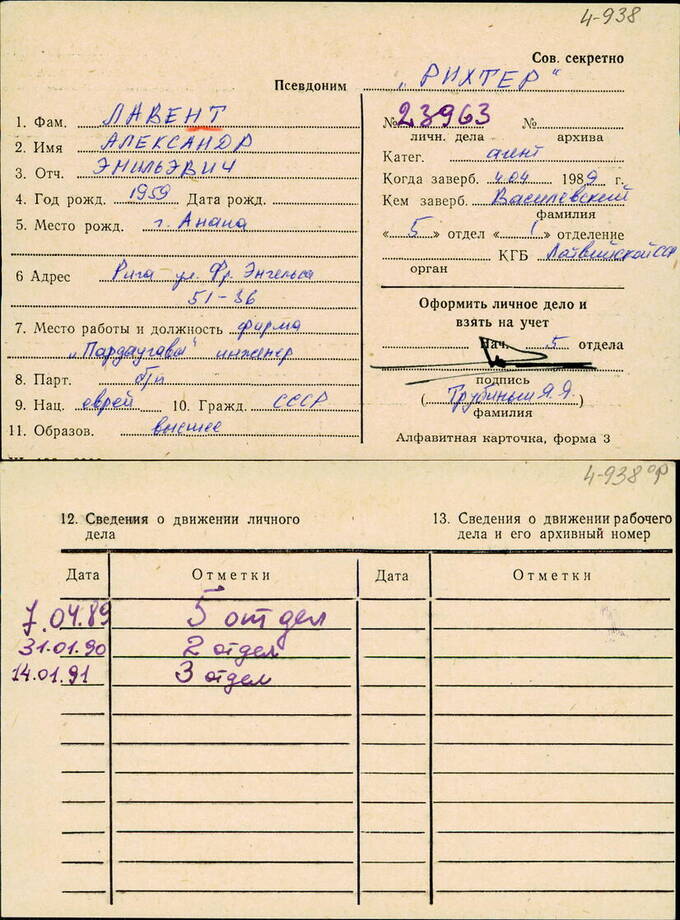 4-938
Сов. секретно
Псевдоним „РИХТЕР“
1. Фам. ЛАВЕНТ
2. Имя АЛЕКСАНДР
3. Отч. ЭМИЛЬЭВИЧ
4. Год рожд. 1959 Дата рожд.
5. Место рожд. г. Анапа
6 Адрес Рига ул. Фр. Энгельса
51-36
7. Место работы и должность фирма
„Пардаугава“ инженер
8. Парт. б/п
9. Нац. еврей 10. Гражд. СССР
11. Образов. высшее
№ 23963 №
личн. дела архива
Катег. агент
Когда заверб. 4.04 1989 г.
Кем заверб. Василевский
фамилия
« 5 » отдел « 1 » отделение
КГБ Латвийской ССР
орган
Оформить личное дело и
взять на учет
Нач. 5 отдела
подпись
(Трубиньш Я.Я.)
фамилия
Алфавитная карточка, форма 3
4-938 об
12. Сведения о движении личного
дела
13. Сведения о движении рабочего
дела и его архивный номер
Дата Отметки Дата Отметки
7.04.89 5 отдел
31.01.90 2 отдел
14.01.91 3 отдел